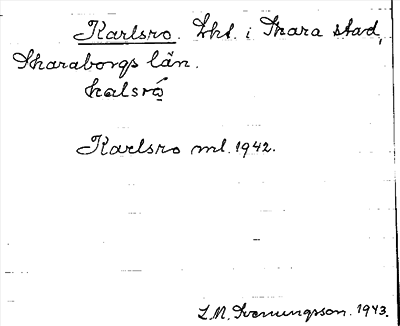 Karlsro. Lht. i Skara stad,
Skaraborgs län.
kalsró̤
Karlsro ml. 1942.
L. M. Svenungsson. 1943.